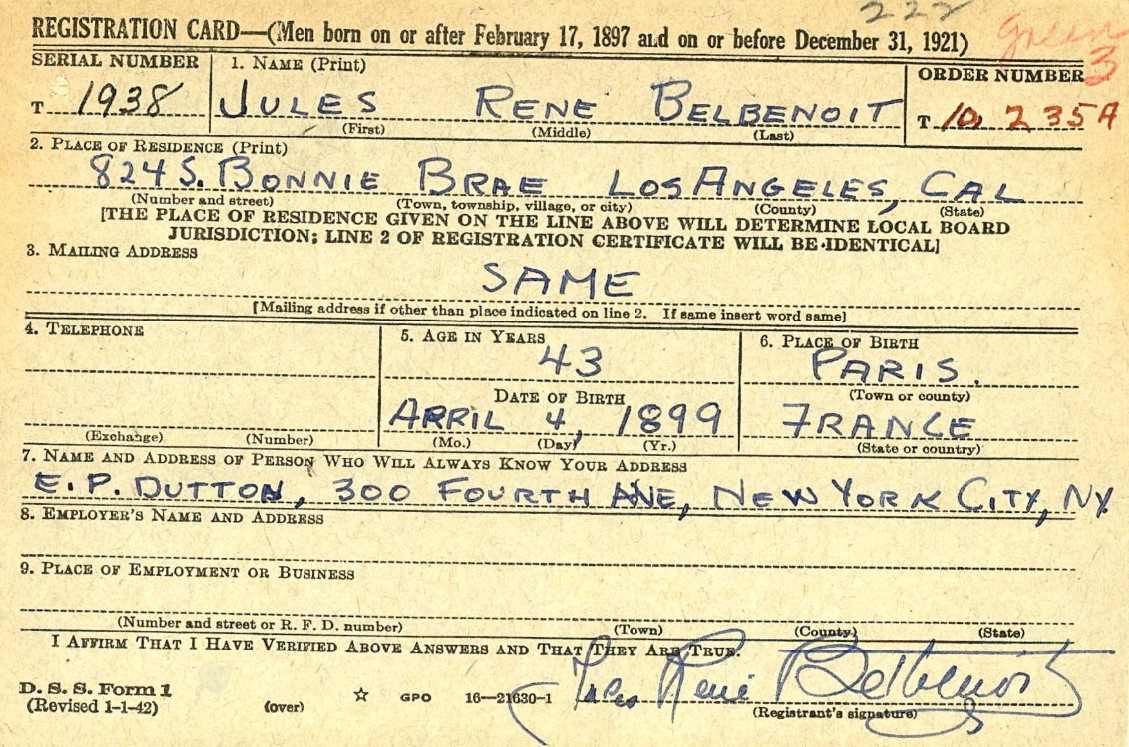 222
REGISTRATION CARD—(Men born on or after February 17, 1897 and on or before December 31, 1921)
green
3
SERIAL NUMBER
1. NAME (Print)
ORDER NUMBER
T 1938
JULES RENE BELBENOIT
T 10,235A
(First) (Middle) (Last)
2. PLACE OF RESIDENCE (Print)
824 S. BONNIE BRAE LOS ANGELES, CAL
(Number and street) (Town, township, village, or city) (County) (State)
[THE PLACE OF RESIDENCE GIVEN ON THE LINE ABOVE WILL DETERMINE LOCAL BOARD
JURISDICTION; LINE 2 OF REGISTRATION CERTIFICATE WILL BE IDENTICAL]
3. MAILING ADDRESS
SAME
[Mailing address if other than place indicated on line 2. If same insert word same]
4. TELEPHONE
(Exchange) (Number)
5. AGE IN YEARS
43
DATE OF BIRTH
APRIL 4, 1899
(Mo.) (Day) (Yr.)
6. PLACE OF BIRTH
PARIS.
(Town or county)
FRANCE
(State or country)
7. NAME AND ADDRESS OF PERSON WHO WILL ALWAYS KNOW YOUR ADDRESS
E.P. DUTTON, 300 FOURTH AVE, NEW YORK CITY, NY.
8. EMPLOYER'S NAME AND ADDRESS
9. PLACE OF EMPLOYMENT OR BUSINESS
(Number and street or R. F. D. number) (Town) (County) (State)
I AFFIRM THAT I HAVE VERIFIED ABOVE ANSWERS AND THAT THEY ARE TRUE.
D. S. S. Form 1
(Revised 1-1-42) (over) ☆ GPO 16—21630-1
Jules René Belbenoit
(Registrant's signature)